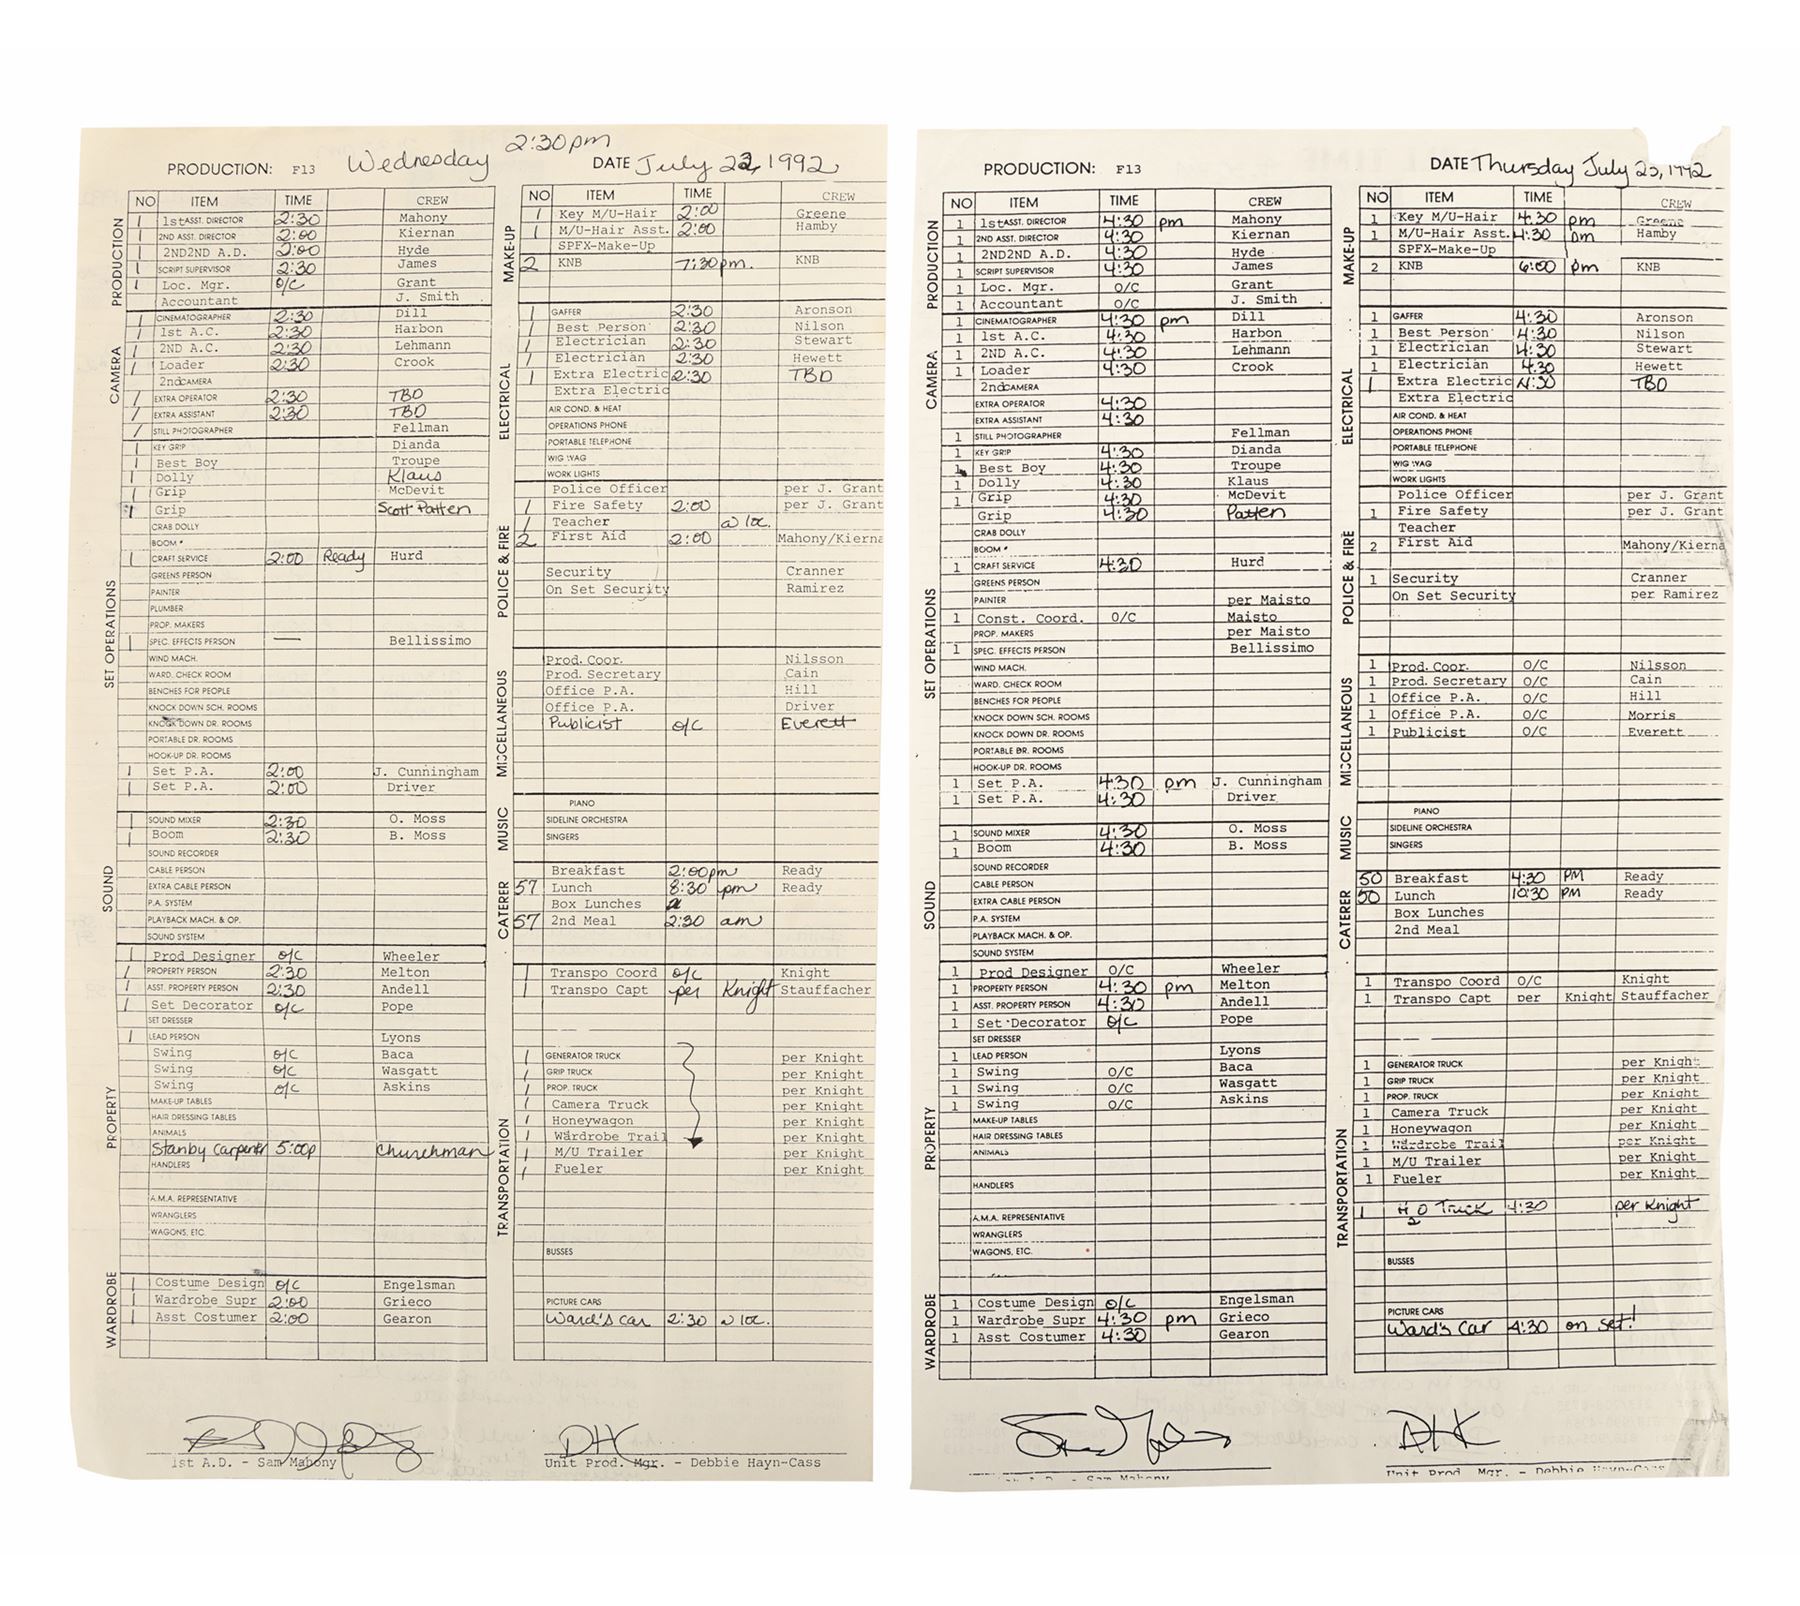 2:30pm
PRODUCTION: F13 Wednesday DATE July 22, 1992
NO ITEM TIME CREW
PRODUCTION
1 1st ASST. DIRECTOR 2:30 Mahony
1 2ND ASST. DIRECTOR 2:00 Kiernan
1 2ND2ND A.D. 2:00 Hyde
1 SCRIPT SUPERVISOR 2:30 James
1 Loc. Mgr. O/C Grant
Accountant J. Smith
CAMERA
1 CINEMATOGRAPHER 2:30 Dill
1 1st A.C. 2:30 Harbon
1 2ND A.C. 2:30 Lehmann
1 Loader 2:30 Crook
2nd CAMERA
1 EXTRA OPERATOR 2:30 TBD
1 EXTRA ASSISTANT 2:30 TBD
1 STILL PHOTOGRAPHER Fellman
SET OPERATIONS
1 KEY GRIP Dianda
1 Best Boy Troupe
1 Dolly Klaus
1 Grip McDevit
1 Grip Scott Patten
CRAB DOLLY
BOOM
1 CRAFT SERVICE 2:00 Ready Hurd
GREENS PERSON
PAINTER
PLUMBER
PROP. MAKERS
1 SPEC. EFFECTS PERSON — Bellissimo
WIND MACH.
WARD. CHECK ROOM
BENCHES FOR PEOPLE
KNOCK DOWN SCH. ROOMS
KNOCK DOWN DR. ROOMS
PORTABLE DR. ROOMS
HOOK-UP DR. ROOMS
1 Set P.A. 2:00 J. Cunningham
1 Set P.A. 2:00 Driver
SOUND
1 SOUND MIXER 2:30 O. Moss
1 Boom 2:30 B. Moss
SOUND RECORDER
CABLE PERSON
EXTRA CABLE PERSON
P.A. SYSTEM
PLAYBACK MACH. & OP.
SOUND SYSTEM
PROPERTY
1 Prod Designer O/C Wheeler
1 PROPERTY PERSON 2:30 Melton
1 ASST. PROPERTY PERSON 2:30 Andell
1 Set Decorator O/C Pope
SET DRESSER
1 LEAD PERSON Lyons
Swing O/C Baca
Swing O/C Wasgatt
Swing O/C Askins
MAKE-UP TABLES
HAIR DRESSING TABLES
ANIMALS
Stanby Carpenter 5:00p Churchman
HANDLERS
A.M.A. REPRESENTATIVE
WRANGLERS
WAGONS, ETC.
WARDROBE
1 Costume Design O/C Engelsman
1 Wardrobe Supr 2:00 Grieco
1 Asst Costumer 2:00 Gearon
NO ITEM TIME CREW
MAKE-UP
1 Key M/U-Hair 2:00 Greene
1 M/U-Hair Asst. 2:00 Hamby
SPFX-Make-Up
2 KNB 7:30pm. KNB
ELECTRICAL
1 GAFFER 2:30 Aronson
1 Best Person 2:30 Nilson
1 Electrician 2:30 Stewart
1 Electrician 2:30 Hewett
1 Extra Electric 2:30 TBD
Extra Electric
AIR COND. & HEAT
OPERATIONS PHONE
PORTABLE TELEPHONE
WIG WAG
WORK LIGHTS
POLICE & FIRE
Police Officer per J. Grant
1 Fire Safety 2:00 per J. Grant
1 Teacher @ loc.
2 First Aid 2:00 Mahony/Kierna
Security Cranner
On Set Security Ramirez
MISCELLANEOUS
Prod. Coor. Nilsson
Prod. Secretary Cain
Office P.A. Hill
Office P.A. Driver
Publicist O/C Everett
MUSIC
PIANO
SIDELINE ORCHESTRA
SINGERS
CATERER
Breakfast 2:00pm Ready
57 Lunch 8:30 pm Ready
Box Lunches
57 2nd Meal 2:30 am
TRANSPORTATION
1 Transpo Coord O/C Knight
1 Transpo Capt per Knight Stauffacher
1 GENERATOR TRUCK per Knight
1 GRIP TRUCK per Knight
1 PROP. TRUCK per Knight
1 Camera Truck per Knight
1 Honeywagon per Knight
1 Wardrobe Trail per Knight
1 M/U Trailer per Knight
1 Fueler per Knight
BUSSES
PICTURE CARS
Ward's car 2:30 @ loc.
1st A.D. - Sam Mahony
DHC
Unit Prod. Mgr. - Debbie Hayn-Cass
PRODUCTION: F13 DATE Thursday July 23, 1992
NO ITEM TIME CREW
PRODUCTION
1 1st ASST. DIRECTOR 4:30 pm Mahony
1 2ND ASST. DIRECTOR 4:30 Kiernan
1 2ND2ND A.D. 4:30 Hyde
1 SCRIPT SUPERVISOR 4:30 James
1 Loc. Mgr. O/C Grant
1 Accountant O/C J. Smith
CAMERA
1 CINEMATOGRAPHER 4:30 pm Dill
1 1st A.C. 4:30 Harbon
1 2ND A.C. 4:30 Lehmann
1 Loader 4:30 Crook
2nd CAMERA
EXTRA OPERATOR 4:30
EXTRA ASSISTANT 4:30
1 STILL PHOTOGRAPHER Fellman
SET OPERATIONS
1 KEY GRIP 4:30 Dianda
1 Best Boy 4:30 Troupe
1 Dolly 4:30 Klaus
1 Grip 4:30 McDevit
Grip 4:30 Patten
CRAB DOLLY
BOOM
1 CRAFT SERVICE 4:30 Hurd
GREENS PERSON
PAINTER per Maisto
1 Const. Coord. O/C Maisto
PROP. MAKERS per Maisto
1 SPEC. EFFECTS PERSON Bellissimo
WIND MACH.
WARD. CHECK ROOM
BENCHES FOR PEOPLE
KNOCK DOWN SCH. ROOMS
KNOCK DOWN DR. ROOMS
PORTABLE DR. ROOMS
HOOK-UP DR. ROOMS
1 Set P.A. 4:30 pm J. Cunningham
1 Set P.A. 4:30 Driver
SOUND
1 SOUND MIXER 4:30 O. Moss
1 Boom 4:30 B. Moss
SOUND RECORDER
CABLE PERSON
EXTRA CABLE PERSON
P.A. SYSTEM
PLAYBACK MACH. & OP.
SOUND SYSTEM
PROPERTY
1 Prod Designer O/C Wheeler
1 PROPERTY PERSON 4:30 pm Melton
1 ASST. PROPERTY PERSON 4:30 Andell
1 Set Decorator O/C Pope
SET DRESSER
1 LEAD PERSON Lyons
1 Swing O/C Baca
1 Swing O/C Wasgatt
1 Swing O/C Askins
MAKE-UP TABLES
HAIR DRESSING TABLES
ANIMALS
HANDLERS
A.M.A. REPRESENTATIVE
WRANGLERS
WAGONS, ETC.
WARDROBE
1 Costume Design O/C Engelsman
1 Wardrobe Supr 4:30 pm Grieco
1 Asst Costumer 4:30 Gearon
NO ITEM TIME CREW
MAKE-UP
1 Key M/U-Hair 4:30 pm Greene
1 M/U-Hair Asst. 4:30 pm Hamby
SPFX-Make-Up
2 KNB 6:00 pm KNB
ELECTRICAL
1 GAFFER 4:30 Aronson
1 Best Person 4:30 Nilson
1 Electrician 4:30 Stewart
1 Electrician 4:30 Hewett
1 Extra Electric 4:30 TBD
Extra Electric
AIR COND. & HEAT
OPERATIONS PHONE
PORTABLE TELEPHONE
WIG WAG
WORK LIGHTS
POLICE & FIRE
Police Officer per J. Grant
1 Fire Safety per J. Grant
Teacher
2 First Aid Mahony/Kierna
1 Security Cranner
On Set Security per Ramirez
MISCELLANEOUS
1 Prod. Coor. O/C Nilsson
1 Prod. Secretary O/C Cain
1 Office P.A. O/C Hill
1 Office P.A. O/C Morris
1 Publicist O/C Everett
MUSIC
PIANO
SIDELINE ORCHESTRA
SINGERS
CATERER
50 Breakfast 4:30 PM Ready
50 Lunch 10:30 PM Ready
Box Lunches
2nd Meal
TRANSPORTATION
1 Transpo Coord O/C Knight
1 Transpo Capt per Knight Stauffacher
1 GENERATOR TRUCK per Knight
1 GRIP TRUCK per Knight
1 PROP. TRUCK per Knight
1 Camera Truck per Knight
1 Honeywagon per Knight
1 Wardrobe Trail per Knight
1 M/U Trailer per Knight
1 Fueler per Knight
1 H2O Truck 4:30 per Knight
BUSSES
PICTURE CARS
Ward's Car 4:30 on set!
A.D. - Sam Mahony
DHC
Unit Prod. Mgr. - Debbie Hayn-Cass